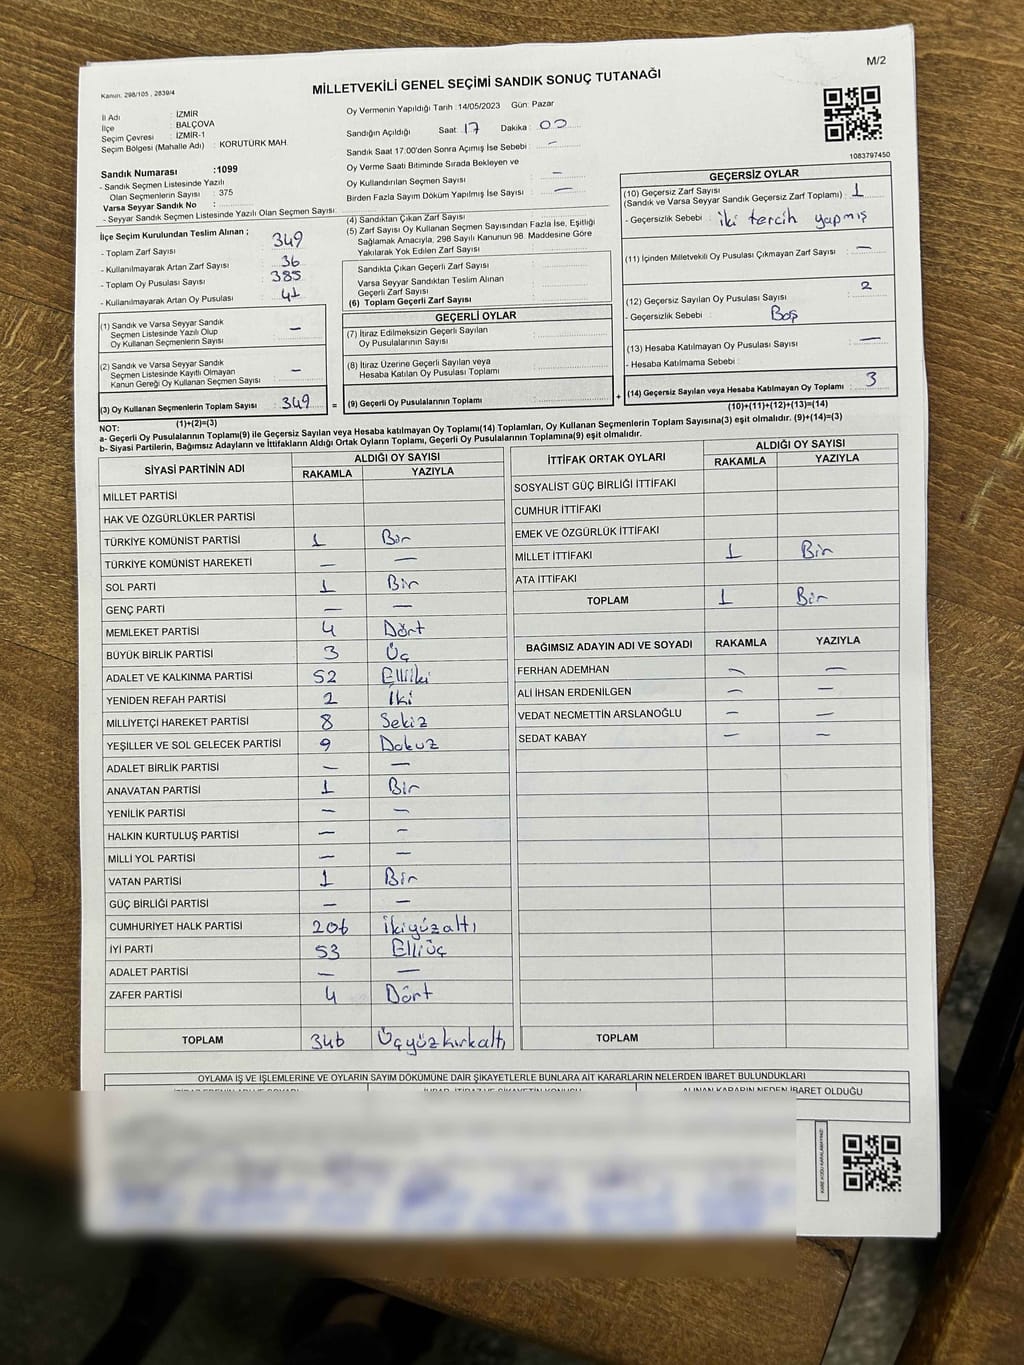 M/2
Kanun, 298/105 , 2839/4
MİLLETVEKİLİ GENEL SEÇİMİ SANDIK SONUÇ TUTANAĞI
İl Adı : İZMİR
İlçe : BALÇOVA
Seçim Çevresi : İZMİR-1
Seçim Bölgesi (Mahalle Adı) : KORUTÜRK MAH.
Oy Vermenin Yapıldığı Tarih :14/05/2023 Gün: Pazar
Sandığın Açıldığı Saat: 17 Dakika : 00
Sandık Saat 17:00'den Sonra Açımış İse Sebebi : –
Oy Verme Saati Bitiminde Sırada Bekleyen ve
Oy Kullandırılan Seçmen Sayısı : –
Birden Fazla Sayım Döküm Yapılmış İse Sayısı : –
1083797450
Sandık Numarası :1099
- Sandık Seçmen Listesinde Yazılı
Olan Seçmenlerin Sayısı : 375
Varsa Seyyar Sandık No :
- Seyyar Sandık Seçmen Listesinde Yazılı Olan Seçmen Sayısı:
İlçe Seçim Kurulundan Teslim Alınan ;
- Toplam Zarf Sayısı : 349
- Kullanılmayarak Artan Zarf Sayısı : 36
- Toplam Oy Pusulası Sayısı : 385
- Kullanılmayarak Artan Oy Pusulası : 41
(1) Sandık ve Varsa Seyyar Sandık
Seçmen Listesinde Yazılı Olup
Oy Kullanan Seçmenlerin Sayısı : –
(2) Sandık ve Varsa Seyyar Sandık
Seçmen Listesinde Kayıtlı Olmayan
Kanun Gereği Oy Kullanan Seçmen Sayısı : –
(3) Oy Kullanan Seçmenlerin Toplam Sayısı : 349
(1)+(2)=(3)
(4) Sandıktan Çıkan Zarf Sayısı :
(5) Zarf Sayısı Oy Kullanan Seçmen Sayısından Fazla İse, Eşitliği
Sağlamak Amacıyla, 298 Sayılı Kanunun 98. Maddesine Göre
Yakılarak Yok Edilen Zarf Sayısı :
Sandıkta Çıkan Geçerli Zarf Sayısı :
Varsa Seyyar Sandıktan Teslim Alınan
Geçerli Zarf Sayısı :
(6) Toplam Geçerli Zarf Sayısı :
GEÇERLİ OYLAR
(7) İtiraz Edilmeksizin Geçerli Sayılan
Oy Pusulalarının Sayısı :
(8) İtiraz Üzerine Geçerli Sayılan veya
Hesaba Katılan Oy Pusulası Toplamı :
= (9) Geçerli Oy Pusulalarının Toplamı :
+
GEÇERSİZ OYLAR
(10) Geçersiz Zarf Sayısı : 1
(Sandık ve Varsa Seyyar Sandık Geçersiz Zarf Toplamı)
- Geçersizlik Sebebi : iki tercih yapmış
(11) İçinden Milletvekili Oy Pusulası Çıkmayan Zarf Sayısı : –
(12) Geçersiz Sayılan Oy Pusulası Sayısı : 2
- Geçersizlik Sebebi : Boş
(13) Hesaba Katılmayan Oy Pusulası Sayısı : –
- Hesaba Katılmama Sebebi :
(14) Geçersiz Sayılan veya Hesaba Katılmayan Oy Toplamı : 3
(10)+(11)+(12)+(13)=(14)
NOT:
a- Geçerli Oy Pusulalarının Toplamı(9) ile Geçersiz Sayılan veya Hesaba katılmayan Oy Toplamı(14) Toplamları, Oy Kullanan Seçmenlerin Toplam Sayısına(3) eşit olmalıdır. (9)+(14)=(3)
b- Siyasi Partilerin, Bağımsız Adayların ve İttifakların Aldığı Ortak Oyların Toplamı, Geçerli Oy Pusulalarının Toplamına(9) eşit olmalıdır.
SİYASİ PARTİNİN ADI ALDIĞI OY SAYISI
RAKAMLA YAZIYLA
MİLLET PARTİSİ
HAK VE ÖZGÜRLÜKLER PARTİSİ
TÜRKİYE KOMÜNİST PARTİSİ 1 Bir
TÜRKİYE KOMÜNİST HAREKETİ – –
SOL PARTİ 1 Bir
GENÇ PARTİ – –
MEMLEKET PARTİSİ 4 Dört
BÜYÜK BİRLİK PARTİSİ 3 Üç
ADALET VE KALKINMA PARTİSİ 52 Elliiki
YENİDEN REFAH PARTİSİ 2 İki
MİLLİYETÇİ HAREKET PARTİSİ 8 Sekiz
YEŞİLLER VE SOL GELECEK PARTİSİ 9 Dokuz
ADALET BİRLİK PARTİSİ – –
ANAVATAN PARTİSİ 1 Bir
YENİLİK PARTİSİ – –
HALKIN KURTULUŞ PARTİSİ – –
MİLLİ YOL PARTİSİ – –
VATAN PARTİSİ 1 Bir
GÜÇ BİRLİĞİ PARTİSİ – –
CUMHURİYET HALK PARTİSİ 206 ikiyüzaltı
İYİ PARTİ 53 Elliüç
ADALET PARTİSİ – –
ZAFER PARTİSİ 4 Dört
TOPLAM 346 Üçyüzkırkaltı
İTTİFAK ORTAK OYLARI ALDIĞI OY SAYISI
RAKAMLA YAZIYLA
SOSYALİST GÜÇ BİRLİĞİ İTTİFAKI
CUMHUR İTTİFAKI
EMEK VE ÖZGÜRLÜK İTTİFAKI
MİLLET İTTİFAKI 1 Bir
ATA İTTİFAKI
TOPLAM 1 Bir
BAĞIMSIZ ADAYIN ADI VE SOYADI RAKAMLA YAZIYLA
FERHAN ADEMHAN – –
ALİ İHSAN ERDENİLGEN – –
VEDAT NECMETTİN ARSLANOĞLU – –
SEDAT KABAY – –
TOPLAM
OYLAMA İŞ VE İŞLEMLERİNE VE OYLARIN SAYIM DÖKÜMÜNE DAİR ŞİKAYETLERLE BUNLARA AİT KARARLARIN NELERDEN İBARET BULUNDUKLARI
ALINAN KARARIN NEDEN İBARET OLDUĞU